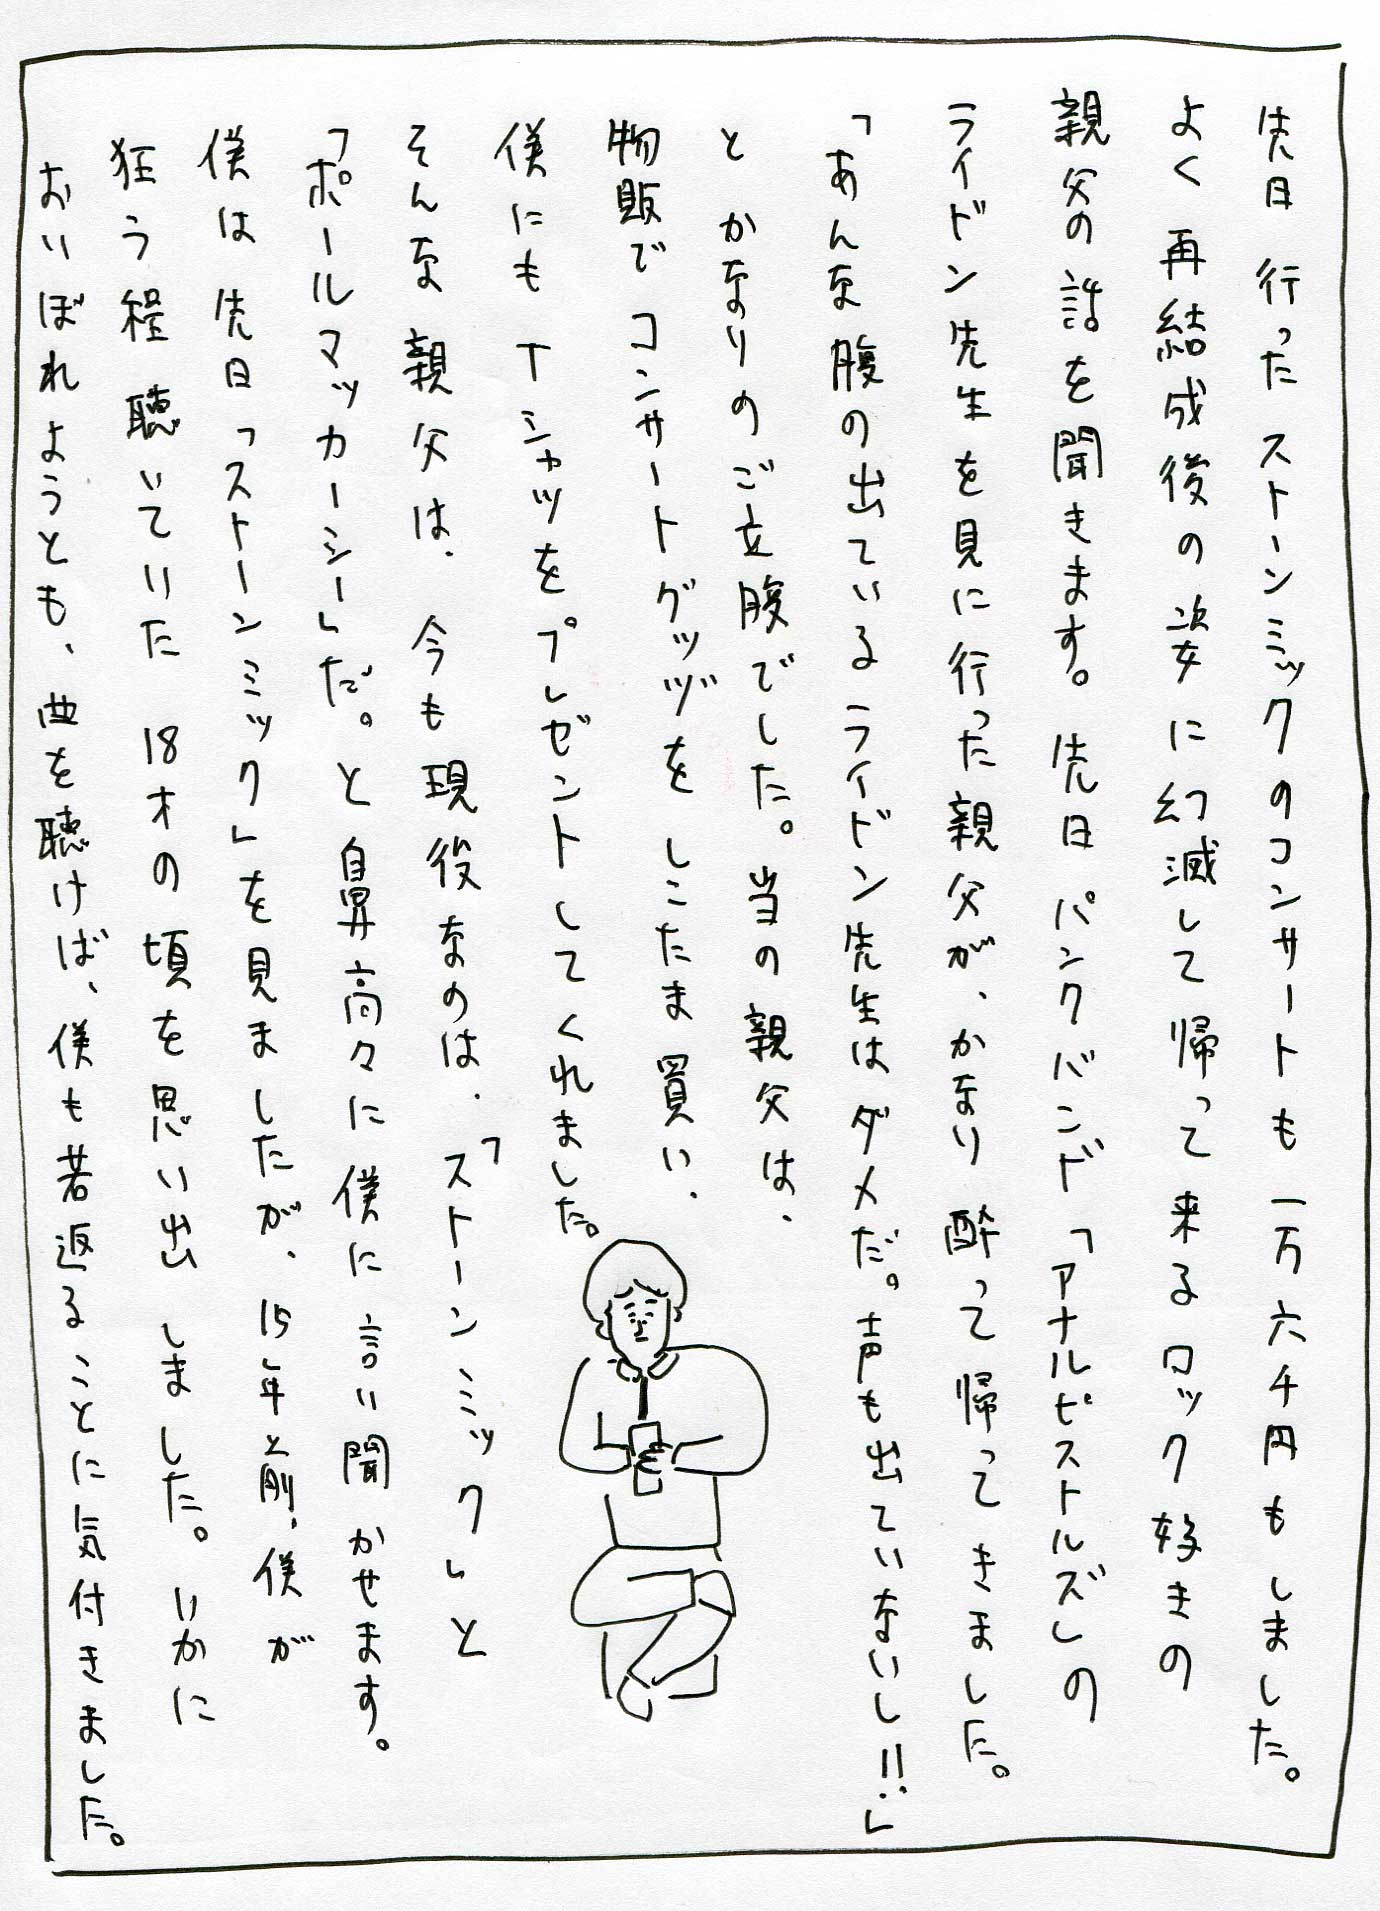 先日行ったストーンミックのコンサートも一万六千円もしました。
よく再結成後の姿に幻滅して帰って来るロック好きの
親父の話を聞きます。先日パンクバンド「アナルピストルズ」の
ライドン先生を見に行った親父が、かなり酔って帰ってきました。
「あんな腹の出ているライドン先生はダメだ。声も出ていないし!!」
とかなりのご立腹でした。当の親父は、
物販でコンサートグッヅをしこたま買い、
僕にもTシャツをプレゼントしてくれました。
そんな親父は、今も現役なのは、「ストーンミック」と
「ポールマッカーシー」だ。と鼻高々に僕に言い聞かせます。
僕は先日「ストーンミック」を見ましたが、15年と前、僕が
狂う程聴いていた18才の頃を思い出しました。いかに
おいぼれようとも、曲を聴けば、僕も若返ることに気付きました。